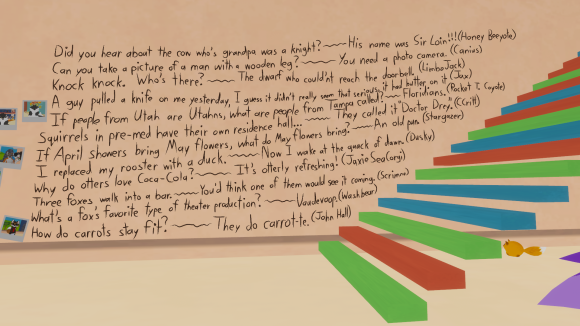 Did you hear about the cow who's grandpa was a knight? His name was Sir Loin!!! (Honey Beeyole)
Can you take a picture of a man with a wooden leg? You need a photo camera. (Canius)
Knock knock. Who's there? The dwarf who couldn't reach the doorbell. (LimboJack)
A guy pulled a knife on me yesterday, I guess it didn't really seem that serious, it had butter on it (Jax)
If people from Utah are Utahns, what are people from Tampa called? Floridians. (Rocket T. Coyote)
Squirrels in pre-med have their own residence hall... They called it Doctor Drey. (CGrill)
If April showers bring May flowers, what do May flowers bring? An old pun. (Stargazer)
I replaced my rooster with a duck. Now I wake at the quack of dawn. (Dusky)
Why do otters love Coca-Cola? It's otterly refreshing! (JaxieSeaCorgi)
Three foxes walk into a bar. You'd think one of them would see it coming. (Scrimm)
What's a fox's favorite type of theater production? Vaudevoop. (Washbear)
How do carrots stay fit? They do carrot-te. (John Hall)